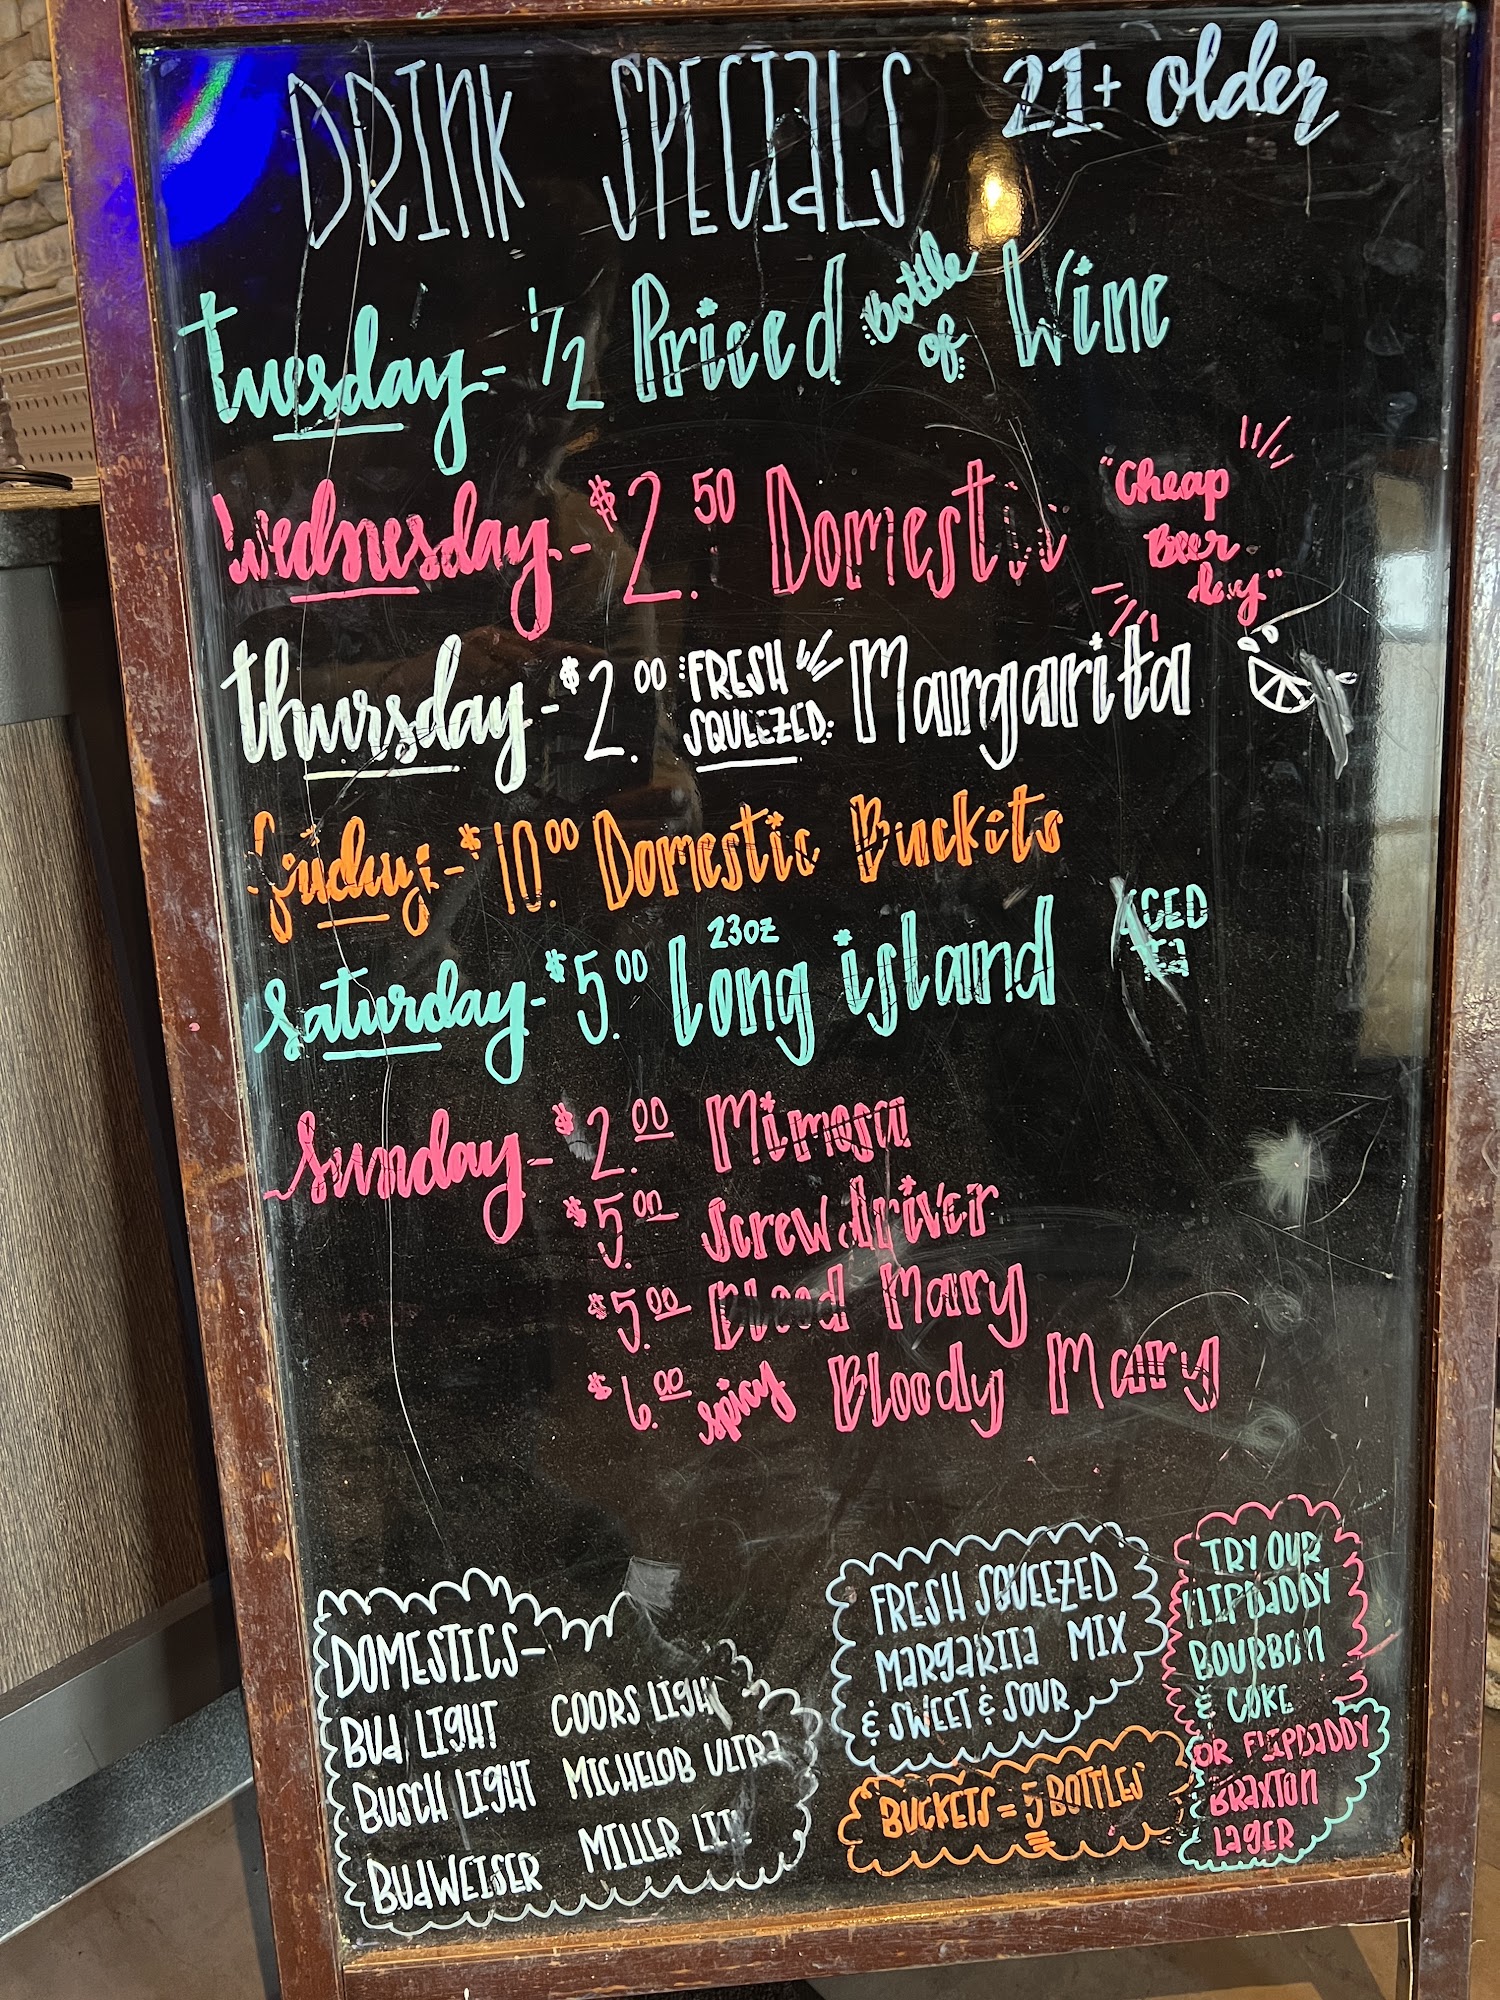 DRINK SPECIALS 21+ older
Tuesday - 1/2 Priced Bottle of Wine
Wednesday - $2.50 Domestic "Cheap Beer day"
Thursday - $2.00 FRESH SQUEEZED Margarita
friday - $10.00 Domestic Buckets
Saturday - $5.00 23oz Long island ICED Ta
Sunday - $2.00 Mimosa
$5.00 Screwdriver
$5.00 Blood Mary
$6.00 spicy Bloody Mary
DOMESTICS-
BUd LIGHT COORS LIGH
BUSCH LIGHT MICHELOB ULTRa
BUdWEISER MILLER LI
FRESH SQUEEZED
MaRGaRITa MIX
& SWEET & SOUR
BUCKETS = 5 BOTTLES
TRY OUR
FLIPDaDDY
BOURBON
& COKE
OR FLIPDaDDY
BRaXTON
LaGER